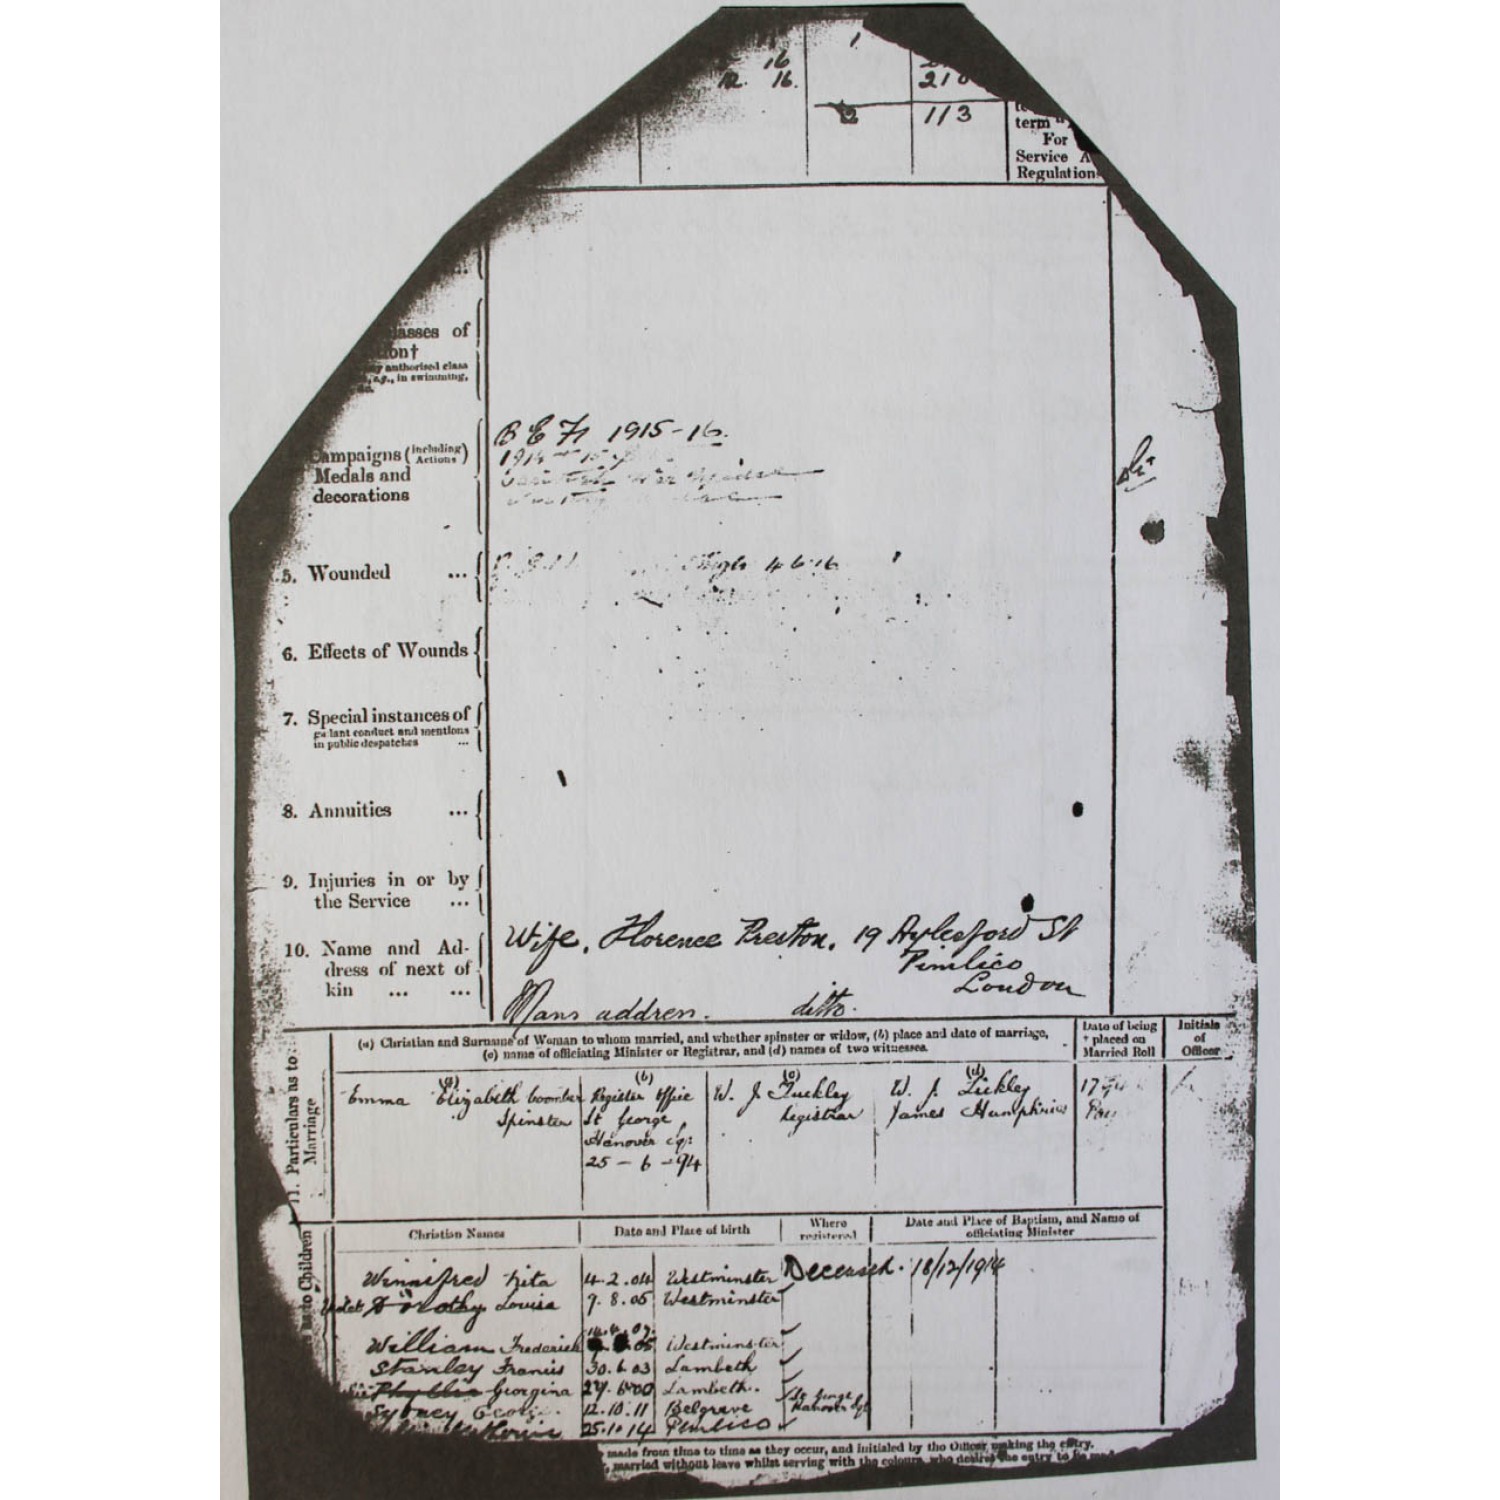 16
1
12. 16.
210
2
113
term
For
Service A
Regulation
asses of
ion†
authorised class
e.g., in swimming,
B E F 1915-16.
ampaigns (including Actions)
Medals and
decorations
1914-15
5. Wounded ...
Thigh 4.6.16
6. Effects of Wounds
7. Special instances of
gallant conduct and mentions
in public despatches ...
8. Annuities ...
9. Injuries in or by
the Service ...
10. Name and Ad-
dress of next of
kin ... ...
Wife, Florence Preston, 19 Aylesford St
Pimlico
London
Mans address. ditto.
11. Particulars as to
Marriage
(a) Christian and Surname of Woman to whom married, and whether spinster or widow, (b) place and date of marriage,
(c) name of officiating Minister or Registrar, and (d) names of two witnesses.
Date of being
placed on
Married Roll
Initials
of
Officer
(a) (b) (c) (d)
Emma Elizabeth Coomber
Spinster
Register Office
St George
Hanover Sq:
25-6-94
W. J.
Registrar
W. J.
James Humphries
as to Children
Christian Names
Date and Place of birth
Where
registered
Date and Place of Baptism, and Name of
officiating Minister
Winnifred Rita 4.2.04 Westminster Deceased. 18/12/1914
Violet Dorothy Louisa 9.8.05 Westminster
William Frederick Westminster
Stanley Francis 30.6.03 Lambeth
Phyllis Georgina 27.6.00 Lambeth. St George Hanover Sq
Sydney George 12.10.11 Belgrave
25.10.14 Pimlico
made from time to time as they occur, and initialed by the Officer making the entry.
married without leave whilst serving with the colours, who desires the entry to be